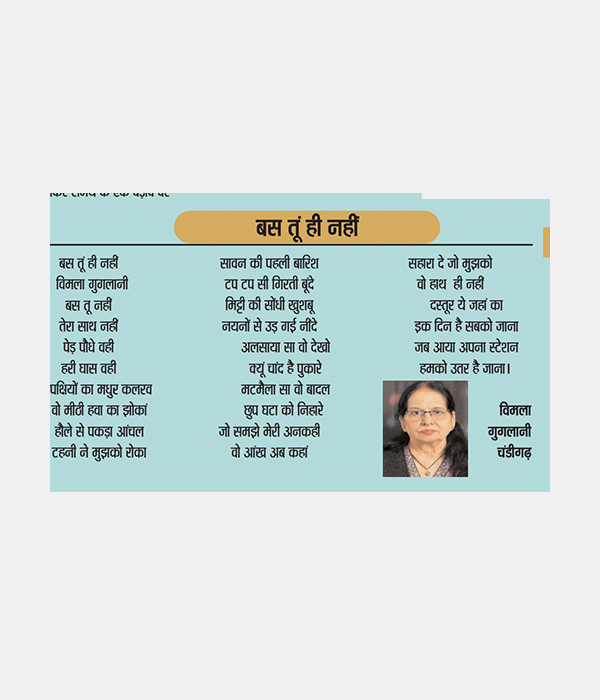 बस तूं ही नहीं
बस तूं ही नहीं
विमला गुगलानी
बस तू नहीं
तेरा साथ नहीं
पेड़ पौधे वही
हरी घास वही
पक्षियों का मधुर कलरव
वो मीठी हवा का झोकां
हौले से पकड़ा आंचल
टहनी ने मुझको रोका
सावन की पहली बारिश
टप टप सी गिरती बूंदे
मिट्टी की सोंधी खुशबू
नयनों से उड़ गई नींदे
अलसाया सा वो देखो
क्यूं चांद है पुकारे
मटमैला सा वो बादल
छुप घटा को निहारे
जो समझे मेरी अनकही
वो आंख अब कहां
सहारा दे जो मुझको
वो हाथ ही नहीं
दस्तूर ये जहां का
इक दिन है सबको जाना
जब आया अपना स्टेशन
हमको उतर है जाना।
विमला
गुगलानी
चंडीगढ़